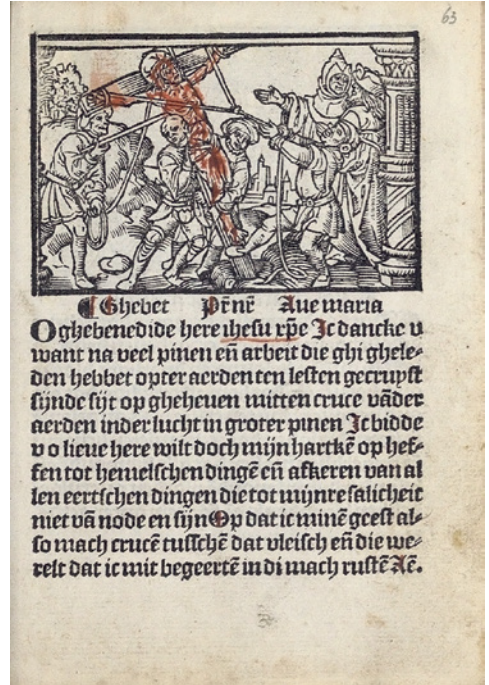 63
¶ Ghebet Pr̄ nr̄ Aue maria
O ghebenedide here ihesu xp̄e Ic dancke u
want na veel pinen en̄ arbeit die ghi ghele⸗
den hebbet opter aerden ten lesten gecruyst
sijnde sijt op gheheuen mitten cruce vāder
aerden in der lucht in groter pinen Ic bidde
v o lieue here wilt doch mijn hartkē op hef⸗
fen tot hemelschen dingē en̄ afkeren van al
len eertschen dingen die tot mijnre salicheit
niet vā node en sijn Op dat ic minē geest al⸗
so mach crucē tusschē dat vleisch en̄ die we⸗
relt dat ic mit begeertē in di mach rustē Aē.